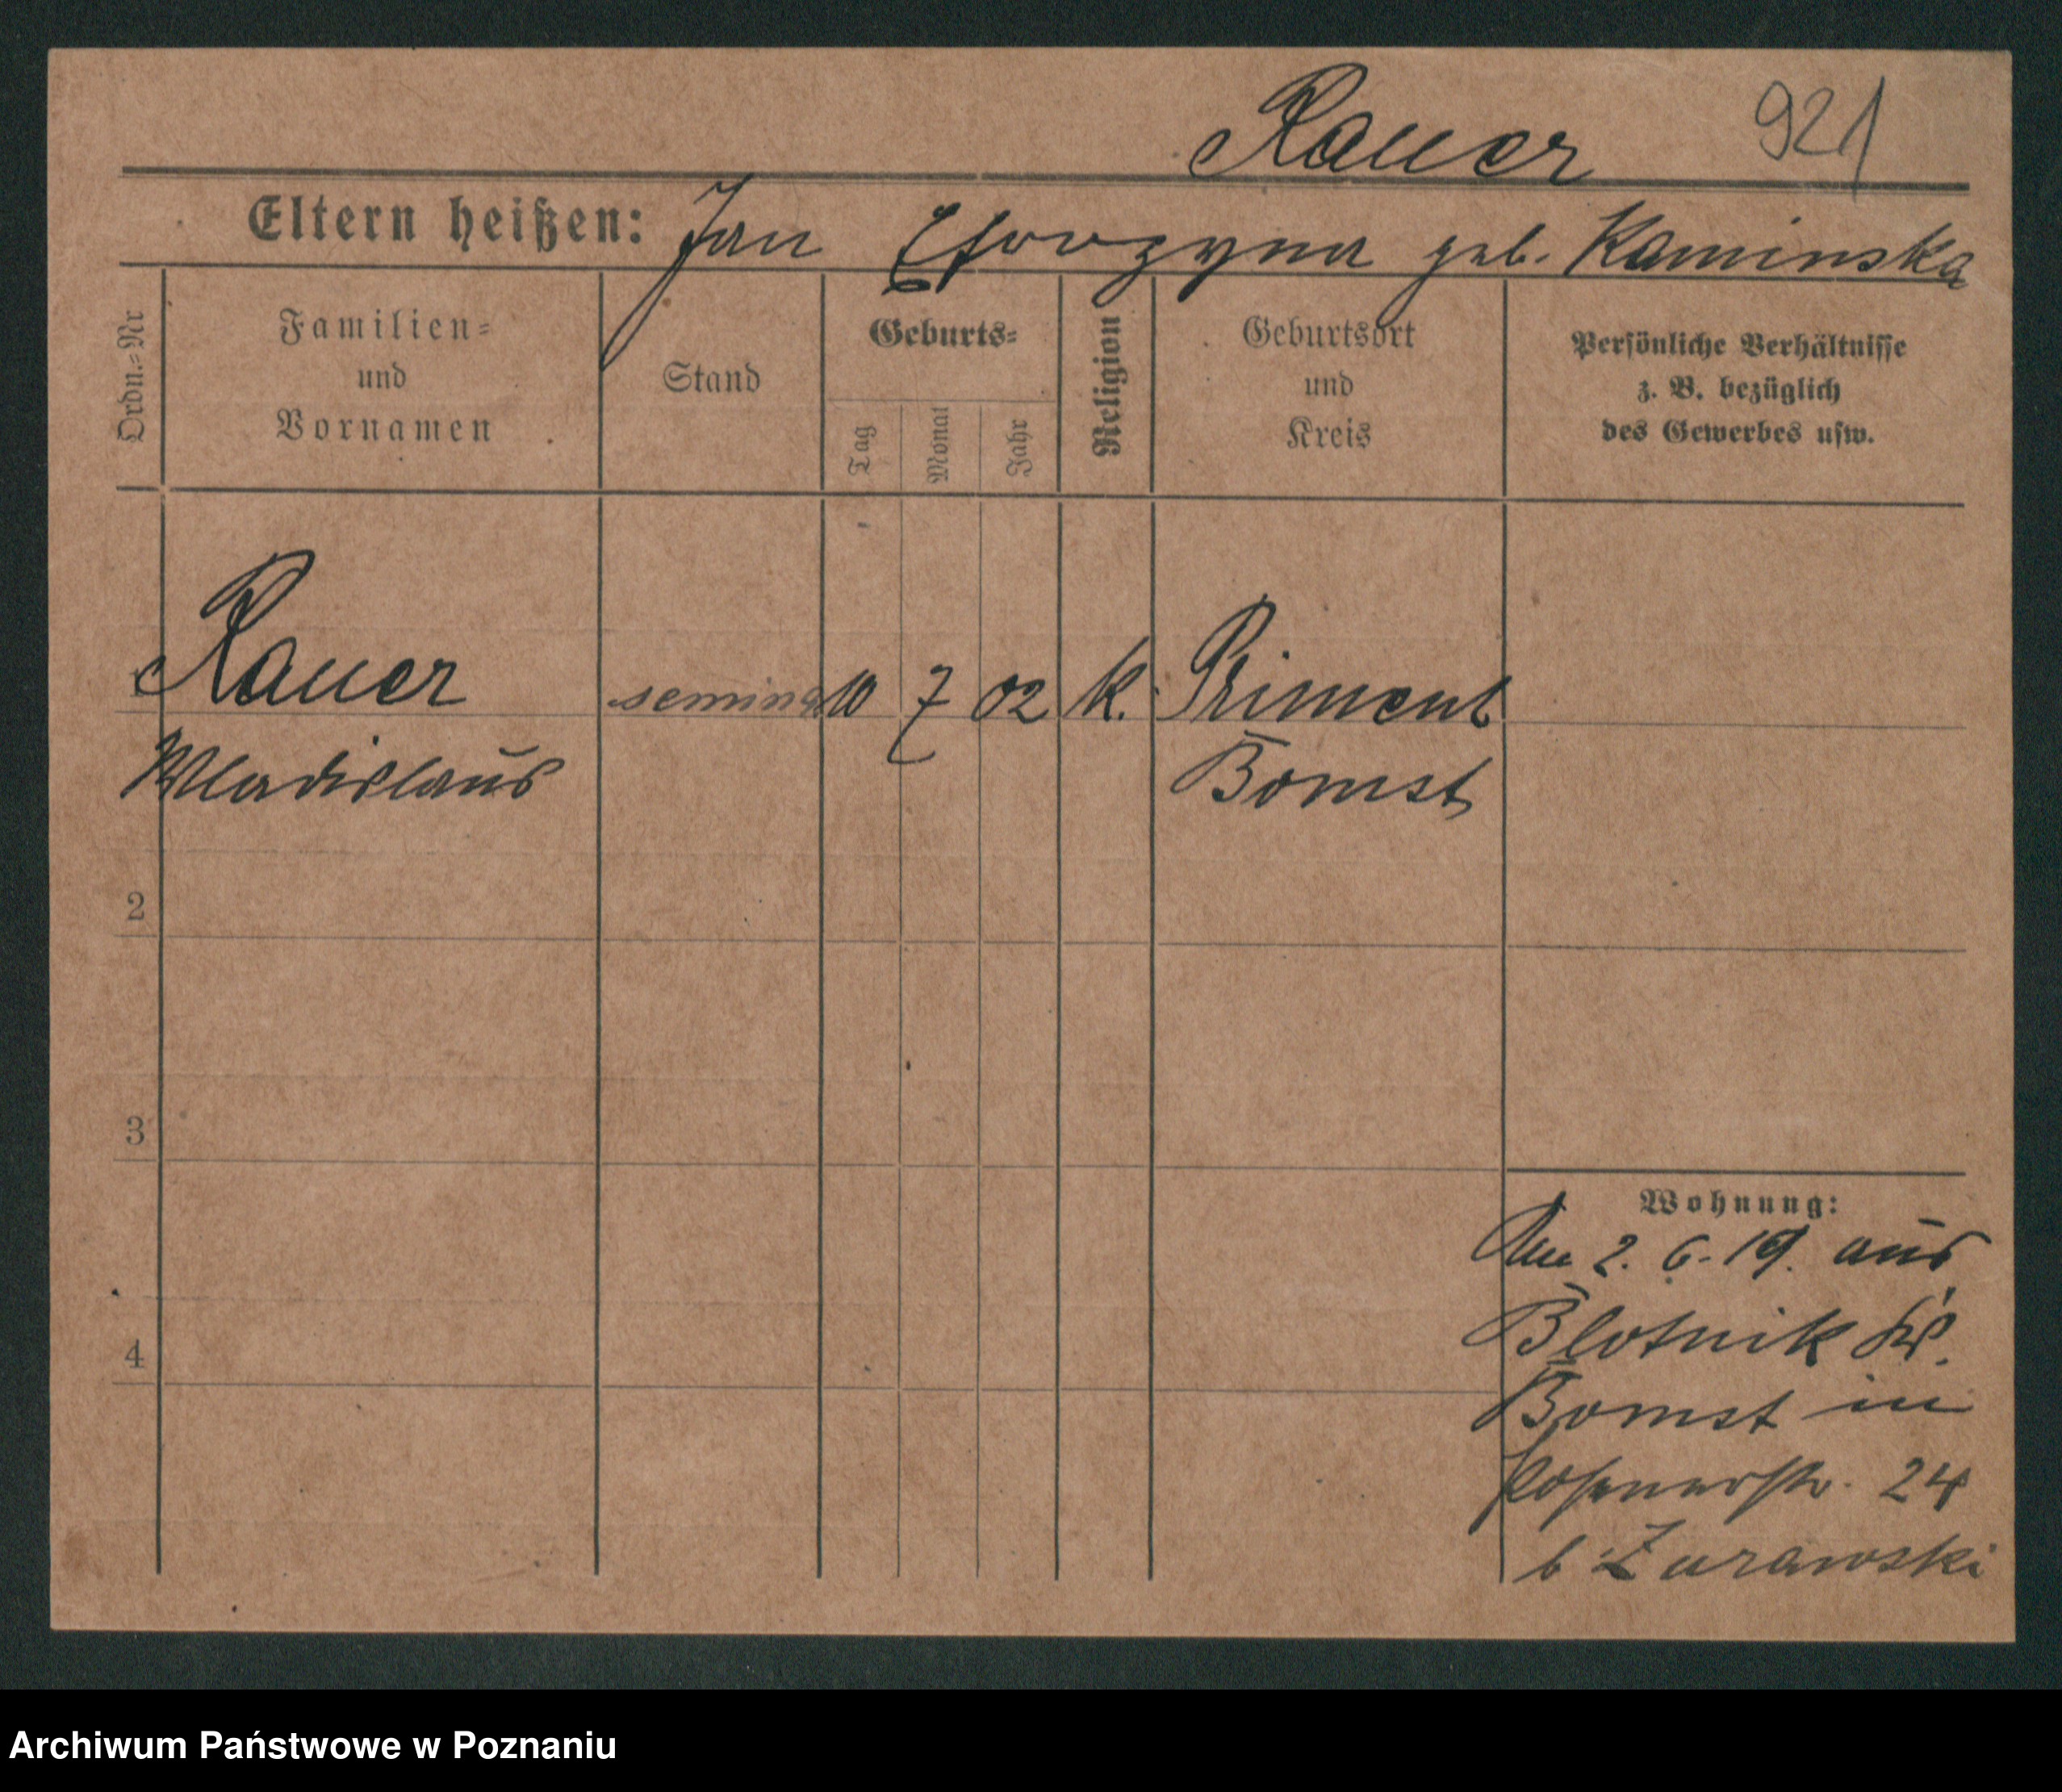 Rauer 921
Eltern heißen: Jan geb. Kaminska
Ordn.=Nr
Familien=
und
Vornamen
Stand
Geburts=
Tag
Monat
Jahr
Religion
Geburtsort
und
Kreis
Persönliche Verhältnisse
z. B. bezüglich
des Gewerbes usw.
1 Rauer semina 10 7 02 k. Priment
Wladislaus Bomst
2
3
4
Wohnung:
2. 6. 19. aus
Blotnik
Bomst in
Posenerstr. 24
b Zurawski
Archiwum Państwowe w Poznaniu